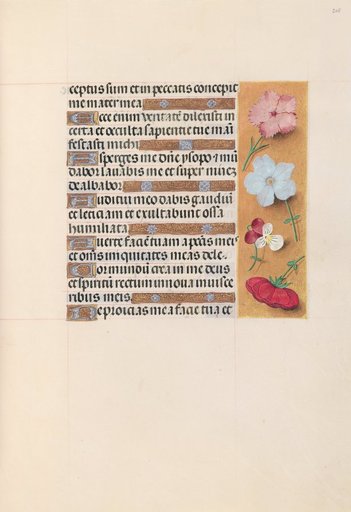 ceptus sum et in peccatis concepit
me mater mea
Ecce enim veritatē dilexisti in
certa et occulta sapientie tue ma
festasti michi
Asperges me dn̄e ysopo et mū
dabor lavabis me et super nivez
dealbabor
Auditui meo dabis gaudiū
et leticiam et exultabunt ossa
humiliata
Averte faciē tuam a pctīs meis
et om̄s iniquitates meas dele
Cor mundū crea in me deus
et spiritū rectum innova in visce
ribus meis
Ne proicias me a facie tua et